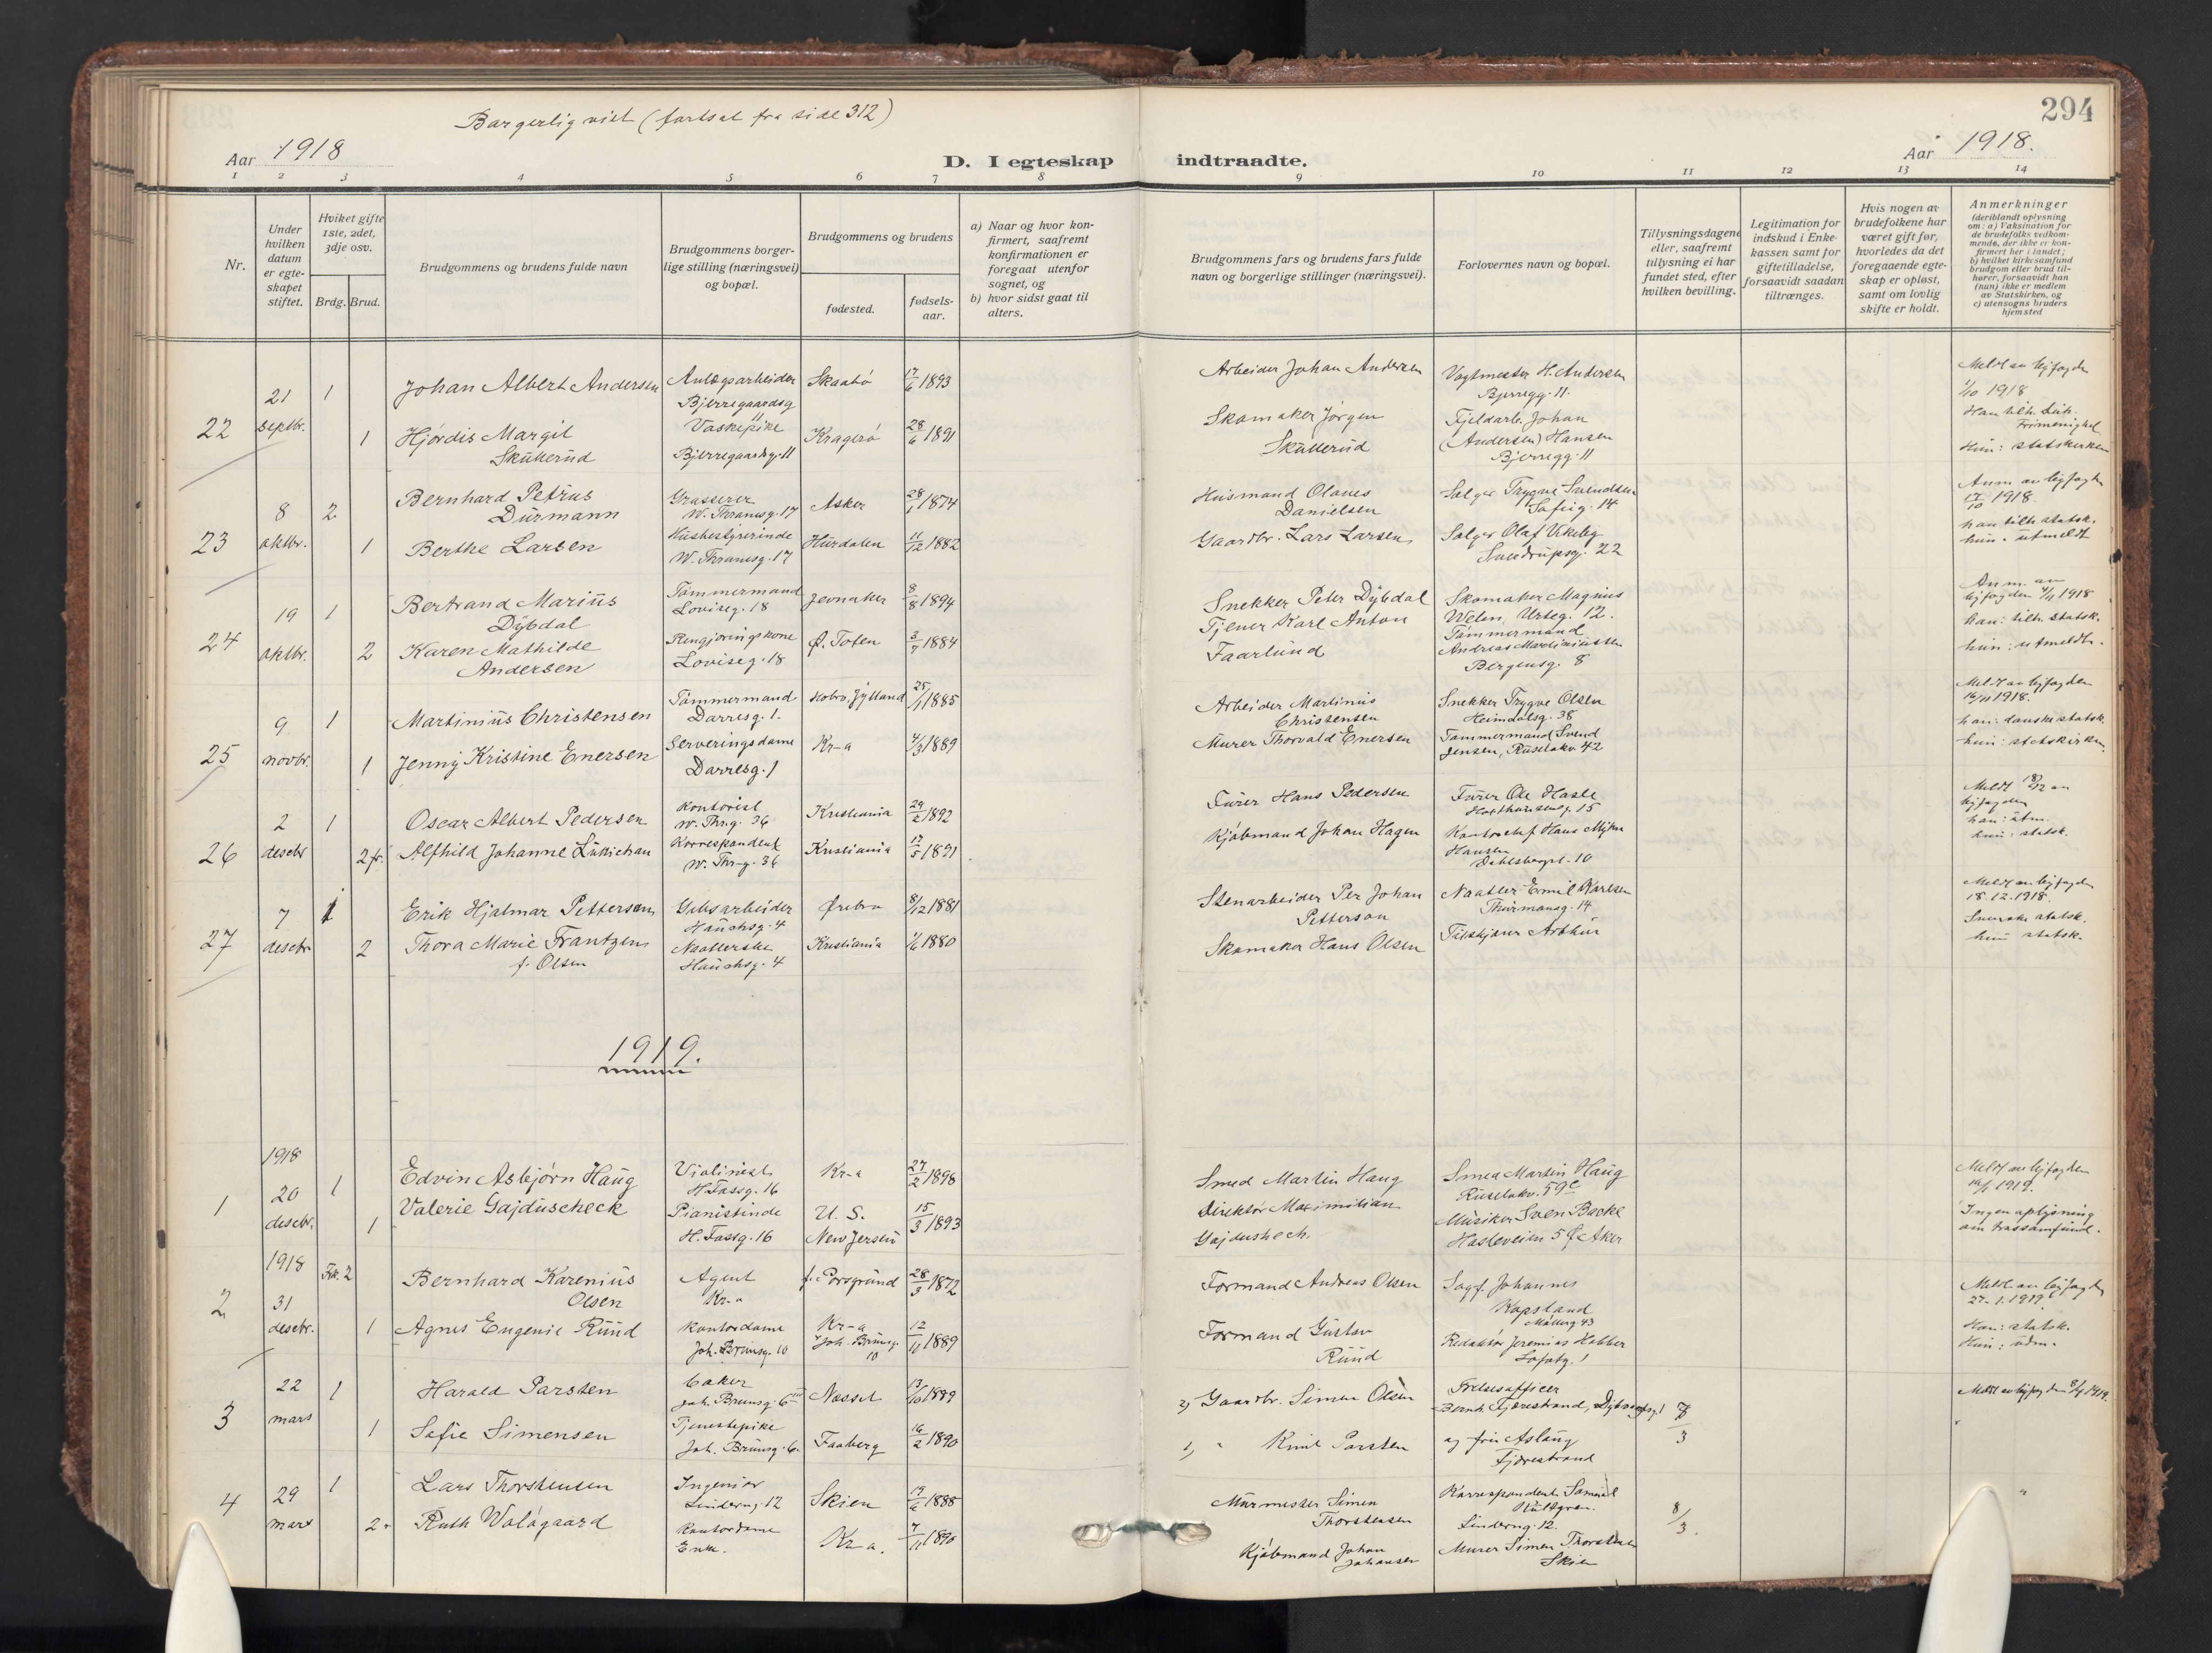 294
Borgerlig viet (fortsat fra side 312)
Aar 1918
D. I egteskap indtraadte.
Aar 1918.
1 2 3 4 5 6 7 8 9 10 11 12 13 14
Nr.
Under
hvilken
datum
er egte-
skapet
stiftet.
Hviket gifte
1ste, 2det,
3dje osv.
Brdg. Brud.
Brudgommens og brudens fulde navn
Brudgommens borger-
lige stilling (næringsvei)
og bopæl.
Brudgommens og brudens
fødested.
fødsels-
aar.
a) Naar og hvor kon-
firmert, saafremt
konfirmationen er
foregaat utenfor
sognet, og
b) hvor sidst gaat til
alters.
Brudgommens fars og brudens fars fulde
navn og borgerlige stillinger (næringsvei).
Forlovernes navn og bopæl.
Tillysningsdagene
eller, saafremt
tillysning ei har
fundet sted, efter
hvilken bevilling.
Legitimation for
indskud i Enke-
kassen samt for
giftetilladelse,
forsaavidt saadan
tiltrænges.
Hvis nogen av
brudefolkene har
været gift før,
hvorledes da det
foregaaende egte-
skap er opløst,
samt om lovlig
skifte er holdt.
Anmerkninger
(deriblandt oplysning
om: a) Vaksination for
de brudefolks vedkom-
mende, der ikke er kon-
firmert her i landet;
b) hvilket kirkesamfund
brudgom eller brud til-
hører, forsaavidt han
(hun) ikke er medlem
av Statskirken, og
c) utensogns bruders
hjemsted
22
21
septbr.
1
Johan Albert Andersen
Anlægsarbeider
Bjerregaardsg
11
Skaatø
17/6 1893
Arbeider Johan Andersen
Vogtmester H. Andersen
Bjerregg. 11.
Meldt av byfogden
1/10 1918
1
Hjørdis Margit
Skullerud
Vaskepike
Bjerregaardsg. 11
Kragerø
28/6 1891
Skomaker Jørgen
Skullerud
Fjeldarb. Johan
(Andersen) Hansen
Bjerregg. 11
Han tilh. Luth.
Frimenighet
Hun: statskirken
23
8
oktbr.
2
Bernhard Petrus
Durmann
Grosserer
W. Thranesg. 17
Asker
28/1 1874
Husmand Olaves
Danielsen
Sælger Trygve Svendsen
Sofieg. 14
Anm. av byfogden
17/10 1918.
1
Berthe Larsen
Husbestyrerinde
W. Thranesg. 17
Hurdalen
11/12 1882
Gaardbr. Lars Larsen
Sælger Olaf Vikeby
Sverdrupsg. 22
han tilh. statsk.
hun. utmeldt
24
19
oktbr.
1
Bertrand Marius
Dybdal
Tømmermand
Loviseg. 18
Jevnaker
8/8 1894
Snekker Peter Dybdal
Skomaker Magnus
Welen, Urteg. 12.
Anm. av
byfogden 7/11 1918
2
Karen Mathilde
Andersen
Rengjøringskone
Loviseg. 18
Ø. Toten
3/7 1884
Tjener Karl Anton
Faarlund
Tømmermand
Andreas Martiniussen
Bergensg. 8
han: tilh. statsk.
hun: utmeldt.
25
9
novbr.
1
Martinius Christensen
Tømmermand
Darresg. 1.
Hobro, Jylland
25/1 1885
Arbeider Martinus
Christensen
Snekker Trygve Olsen
Heimdalsg. 38
Meldt av byfogden
16/11 1918.
1
Jenny Kristine Enersen
Serveringsdame
Darresg. 1
Kr-a
4/3 1889
Murer Thorvald Enersen
Tømmermand Svend
Jensen, Ruseløkv. 42
han: danske statsk.
hun: statskirken.
26
2
desebr
1
Oscar Albert Pedersen
Kontorist
W. Thr.g. 36
Kristiania
29/2 1892
Furer Hans Pedersen
Furer Ole Hasle
Holthausensg. 15
Meldt 18/12 av
byfogden
2 fr.
Alfhild Johanne Lukichau
Korrespondent
W. Thr-g. 36
Kristiania
17/5 1891
Kjøbmand Johan Hagen
Kontorchef Hans Mijhn
Hansen
Dahlsbergst. 10
han: utm.
hun: statsk.
27
7
desebr.
1
Erik Hjalmar Pettersen
Gibsarbeider
Hauchsg. 4
Ørebro
8/12 1881
Stenarbeider Per Johan
Petterson
Naatler Emil Karlsen
Thurmansg. 14
Meldt av byfogden
18.12.1918.
2
Thora Marie Frantzen
f. Olsen
Naatlerske
Hauchsg. 4
Kristiania
1/6 1880
Skomaker Hans Olsen
Tilskjærer Arthur
Svenske statsk.
hun statsk.
1919.
1
1918
20
desebr.
1
Edvin Asbjørn Haug
Violinist
H. Fossg. 16
Kr-a
27/2 1898
Smed Martin Haug
Smed Martin Haug
Ruseløkv. 59c
Meldt av byfogden
14/1 1919.
1
Valerie Gajduscheck
Pianistinde
H. Fossg. 16
U. S.
New Jerseu
15/3 1893
Direktør Maximilian
Gajduscheck
Musiker Sven Backe
Hasleveien 5 Ø. Aker
Ingen oplysning
om trossamfund.
2
1918
31
desebr.
Frk. 2
Bernhard Karenius
Olsen
Agent
Kr-a
f. Porsgrund
28/3 1872
Formand Andreas Olsen
Sagf. Johannes
Kopsland
Møllerg. 43
Meldt av byfogden
27-1.1919
1
Agnes Eugenie Ruud
Kontordame
Joh. Brunsg. 10
Kr-a
Joh. Brunsg.
10
12/11 1889
Formand Gustav
Ruud
Redaktør Jeremias Hobber
Sofieg. 1
Han: statsk.
Hun: udm.
3
22
mars
1
Harald Parsten
baker
Joh. Brunsg. 6 III
Nesset
13/10 1889
2) Gaardbr. Simen Olsen
Frelsesofficer
Bernh. Fjærestrand, Dybwadsg. 1
7/3
Meldt av byfogden 8/4 1919.
1
Sofie Simensen
Tjenestepike
Joh. Brunsg. 6.
Faaberg
16/2 1890
1) " Knut Parsten
og fru Aslaug
Fjærestrand
4
29
mars
1
Lars Thorstensen
Ingeniør
Linderng. 12
Skien
19/6 1888
Murmester Simen
Thorstensen
Korrespondent Samuel
Hultgren.
Linderng. 12.
8/3.
"
2.
Ruth Waløgaard
Kontordame
Enke.
Kr-a.
7/11 1890
Kjøbmand Johan
Johansen
Murer Simen Thorstensen
Skien